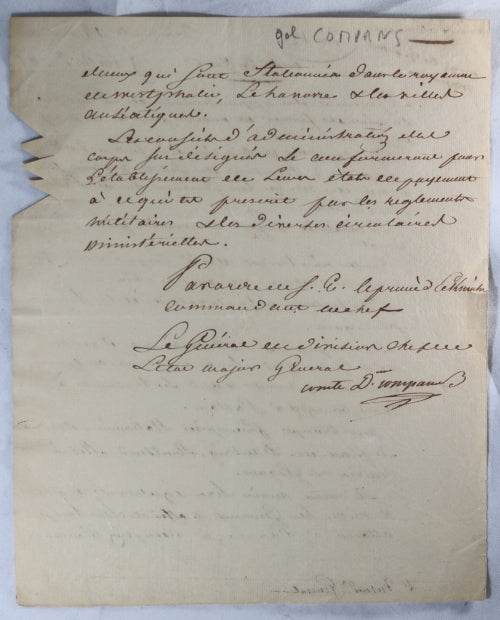 gal COMPANS
et ceux qui sont Stationnés dans le royaume
de westphalie, Le hanovre & les villes
anséatiques.
Les conseils d'administration des
corps sus désignés Se conformeront pour
L'établissement de Leurs états de payement
à ce qui est prescrit par les réglements
militaires & les diverses circulaires
ministérielles.
Par ordre de S. E. le prince d'Eckmühl
commandant en chef
Le Général de division chef de
L'état major Général
comte D. compans